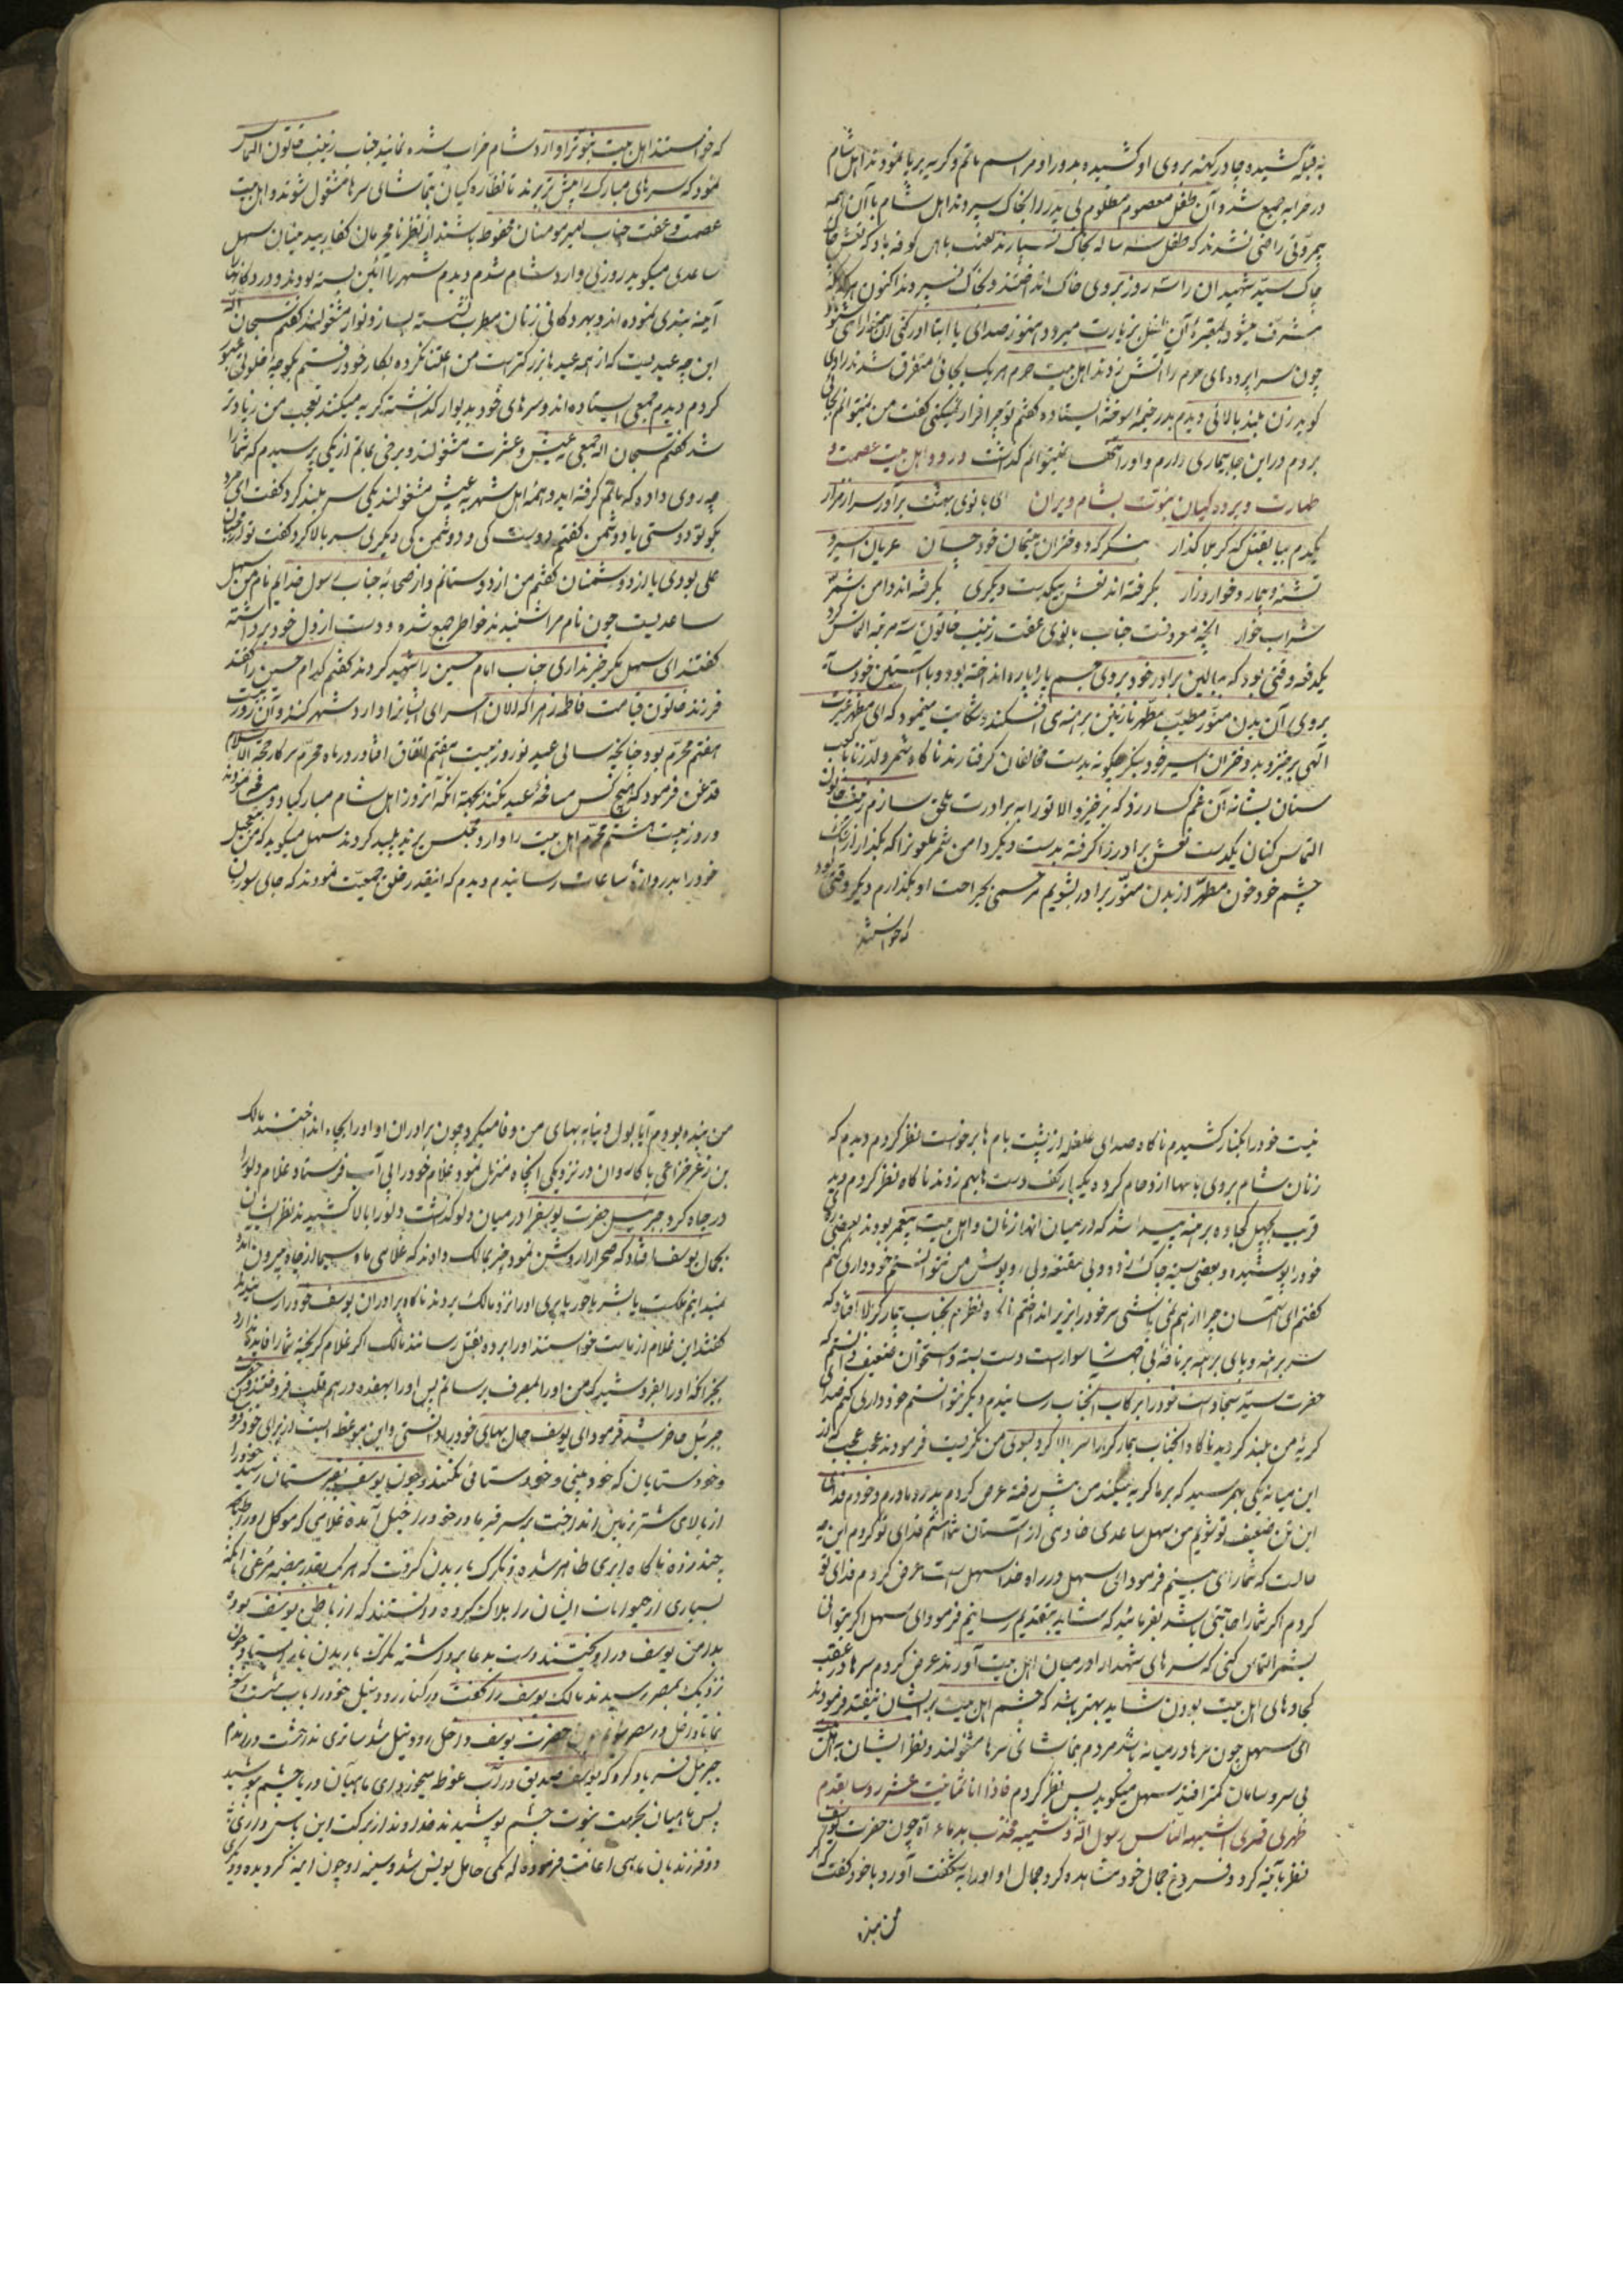 به قبه کشیده چادر کهنه بروی او کشیده بدور او مراسم ماتم و گریه برپا نمودند اهل شام
در خرابه جمع شده آن طفل معصوم مظلوم بی پدر را بخاک سپردند اهل شام با آن همه
بیمروّتی راضی نشدند که طفل سه ساله بخاک نسپارند لعنت باهل کوفه باد که نعش
چاک سیّد شهیدان را سه روز بروی خاک انداختند و بخاک نسپردند اکنون هر که
مشرّف میشود بمقبرهٔ آن طفل بزیارت میرود هنوز صدای یا ابتا
چون سراپرده های حرم را آتش زدند اهل بیت حرم هر یک بجائی متفرق شدند راوی
کوید زن بلند بالائی دیدم بدر خیمهٔ سوخته ایستاده کفتم تو چرا فرار نمیکنی کفت من نمیتوانم بجائی
بروم در این جا بیماری دارم و او را تنها نمیتوانم کذاشت ورود اهل بیت عصمت و
طهارت و برده کیان نبوّت بشام ویران ای بانوی بهشت برآور سر از مزار
یکدم بیا بقتل که کربلا کذار بنکر که دختران یتیمان خود چسان عریان اسیر و
تشنه و بیمار و خوار و زار بکرفته اند نعش بیکدست و دیکری بکرفته اند دامن شمر
شراب خوار آنچه معروفست جناب بانوی عفت زینب خاتون سه مرتبه التماس کرد
یکدفعه وقتی بود که ببالین برادر خود بروی جسم پاره پاره انداخته بود و با آستین خود سایه
بروی آن بدن منوّر مطیّب مطهّر نازنین برهنه می افکند و شکایت مینمود که ای مظهر غیرت
آلهی برخیز و بدختران اسیر خود بنکر چکونه بدست مخالفان کرفتارند ناکاه شمر ولد زنا
سنان بشانه آن غم کسار زد که برخیز والا تو را به برادرت ملحق سازم زینب خاتون
التماس کنان یکدست نعش برادر را کرفته بدست دیکر دامن شمر ملعون را که بکذار از اشک
چشم خود خون مطهّر از بدن منوّر برادر بشویم مرحمی بجراحت او بکذارم دیکر وقتی بود
که خواستند
که خواستند اهل بیت نبوّت را وارد شام خراب شده نمایند جناب زینب خاتون التماس
نمود که سرهای مبارک را پیش تر برند تا نظاره کیان بتماشای سرها مشغول شوند و اهل بیت
عصمت و عفت جناب امیر مومنان محفوظ باشند از نظر نامحرمان کفار بیدینان سهل
ساعدی میکوید روزی وارد شام شدم دیدم شهر را آئین بسته بودند و در دکانها
آینه بندی نموده اند و بهر دکانی زنان مطرب نشسته بساز و نواز مشغولند کفتم سبحان الله
این چه عید یست که از همه عیدها بزرکتر است من اعتنا نکرده بکار خود رفتم بکوچه خلوتی عبور
کردم دیدم جمعی ایستاده اند و سرهای خود بدیوار کذاشته کریه میکنند تعجب من زیادتر
شد کفتم سبحان الله جمعی بعیش و عشرت مشغولند و برخی بماتم از یکی پرسیدم که شما را
چه روی داده که ماتم کرفته اید و همهٔ اهل شهر به عیش مشغولند یکی سر بلند کرد کفت ای مرد
بکو تو دوستی یا دشمن کفتم دوست کی و دشمن کی دیکری سر بالا کرد کفت تو از محبّان
علی بودی یا از دشمنان کفتم من از دوستانم و از صحابهٔ جناب رسول خدایم نام من سهل
ساعد یست چون نام مرا شنیدند خواطر جمع شده و دست از دل خود برداشته
کفتند ای سهل مکر خبر نداری جناب امام حسین را شهید کردند کفتم کدام حسین را کفتند
فرزند خاتون قیامت فاطمه زهرا که الان اسرای ایشانرا وارد شهر کنند و آن روز بیست
هفتم محرّم بود چنانچه سالی عید نوروز بیست هفتم اتفاق افتاد در ماه محرّم
قدغن فرمود که هیچ کس مصافحهٔ عید نکنند بجهة آنکه آن روز اهل شام مبارکباد
و روز بیست هشتم محرّم اهل بیت را وارد مجلس یزید پلید کردند سهل میکوید که من بتعجیل
خود را بدروازهٔ ساعات رسانیدم دیدم که انقدر خلق جمعیّت نمودند که جای سوزن
نیست خود را بکنار کشیدم ناکاه صدای غلغله از پشت بام ها برخواست نظر کردم دیدم که
زنان شام بروی بامها ازدحام کرده یکبار کف دست بهم زدند ناکاه نظر کردم دیدم
قریب بچهل کجاوه برهنه پیدا شد که در میان انها زنان و اهل بیت پیغمبر بودند بعضی
خود را پوشیده و بعضی سینه چاک زده و بی مقنعه و بی روپوش من نتوانستم خودداری کنم
کفتم ای آسمان چرا از هم نمی پاشی سر خود را بزیر انداختم ناکاه نظرم بجناب بیمار کربلا افتاد که
سر برهنه و پای برهنه بر ناقهٔ بی جهاز سوار است دست بسته و استخوان ضعیف دانستم که
حضرت سیّد سجاد است خود را برکاب انجناب رسانیدم دیکر نتوانستم خودداری کنم صدای
کریهٔ من بلند کردید ناکاه انجناب بیمار کربلا سر بالا کرد بسوی من نکریست فرمودند عجب عجب که از
این میانه یکی بهم رسید که بر ما کریه میکند من پیش رفته عرض کردم پدر و مادرم و خودم فدای
این تن ضعیف تو شوم من سهل ساعدی خادمی از آستان شما هستم فدای تو کردم این چه
حالت که شما را می بینم فرمود ای سهل در راه خدا سهل است عرض کردم فدای تو
کردم اکر شما را حاجتی باشد بفرمائید که شاید بتقدیم رسانم فرمود ای سهل اکر بتوانی
بشمر التماس کنی که سرهای شهدا را در میان اهل بیت آورند عرض کردم سرها در عقب
کجاوهای اهل بیت بودن شاید بهتر باشد که چشم اهل بیت بر ایشان نیفتد فرمودند
ای سهل چون سرها در میانه باشد مردم بتماشای سرها مشغولند و نظر ایشان به اهل بیت
بی سر و سامان کمتر افتد سهل میکوید پس نظر کردم فاذا انا ثمانیت عشر روسا یقدم
ظهر لی قمر لی اشبیهه الناس رسول الله و شیبه مخذب بدماء آه چون حضرت یوسف
نظر بآینه کرد و فروغ جمال خود مشاهده کرد جمال او او را به شکفت آورد با خود کفت اکر
من بنده
من بنده بودم آیا پول دنیا به بهای من وفا میکرد چون برادران او او را بچاه انداختند مالک
بن زعر خزاعی با کاروان در نزدیکی انچاه منزل نمود غلام خود را بی آب فرستاد غلام دلو را
در چاه کرد جبرئیل حضرت یوسف را در میان دلو کذاشت دلو را بالا کشیدند نظر ایشان
بجمال یوسف افتاد که صحرا را روشن نمود خبر بمالک دادند که غلامی ماه سیما از چاه بیرون آمده
نمیدانم ملکست یا بشر یا حور یا پری او را نزد مالک بردند ناکاه برادران یوسف خود را رسانیدند
کفتند این غلام از ماست خواستند او را برده بقتل رسانند مالک کفت اکر غلام کریخته شما را فایده ندارد
بخیر آنکه او را بفروشید که من او را بمصرف برسانم پس او را بهفده درهم قلب فروختند
جبرئیل حاضر شد فرمود ای یوسف حال بهای خود را دانستی و این موعظه ایست از برای
و خودستایان که خود بینی و خودستائی نکنند و چون یوسف بقبرستان رسید خود را
از بالای شتر بزمین انداخت بر سر قبر مادر خود راحیل آمده غلامی که موکل او بود طپانچه
چند زد ناکاه ابری ظاهر شده و تکرک باریدن کرفت که هر یک بقدر بیضه مرغی
بسیاری از حیوانات ایشان را هلاک کرده دانستند که از باطن یوسف بوده
بدامن یوسف در اویختند دست بدعا برداشته تکرک باریدن باز ایستاد چون
نزدیک بمصر رسیدند مالک یوسف را کفت در کنار رود نیل خود را باب شست
حضرت یوسف داخل رود نیل شد
جبرئیل فریاد کرد که یوسف صدیق در آب غوطه میخورد ای ماهیان دریا چشم بپوشید
پس ماهیان بحرمت نبوّت چشم پوشیدند خداوند از برکت این پاس داری